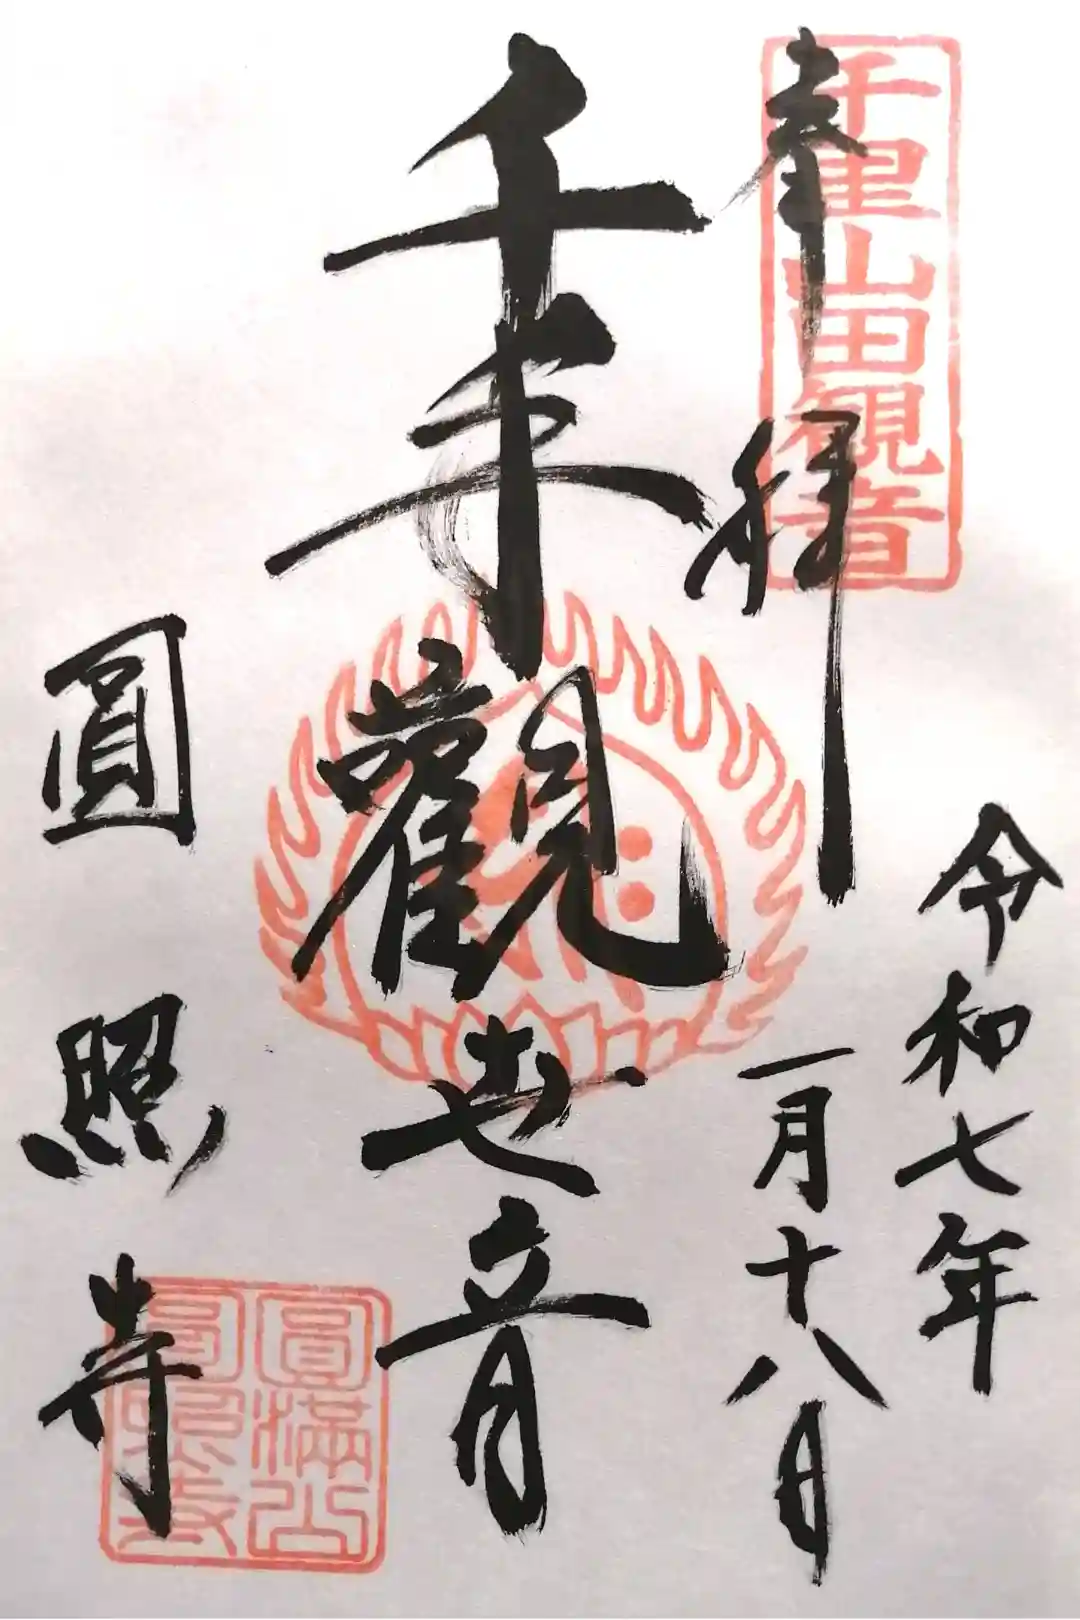 奉拝
千里山田観音
令和七年
一月十八日
千手觀世音
圓照寺
圓満山
圓照寺